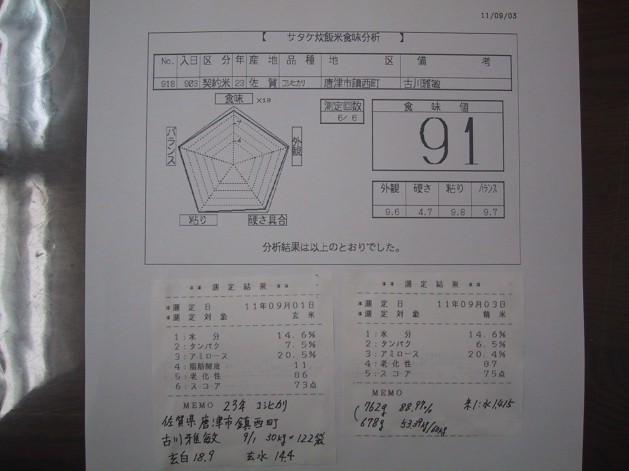 11/09/03
【 サタケ炊飯米食味分析 】
No. 入日 区分 年 産地 品種 地区 備考
918 903 契約米 23 佐賀 コシヒカリ 唐津市鎮西町 古川雅敏
食味 ×10
外観
硬さ具合
粘り
バランス
測定回数
6/ 6
食味値
91
外観 硬さ 粘り バランス
9.6 4.7 9.8 9.7
分析結果は以上のとおりでした。
** 測定結果 **
*測定日 11年09月01日
*測定対象 玄米
1:水分 14.6%
2:タンパク 7.5%
3:アミロース 20.5%
4:脂肪酸度 11
5:老化性 06
6:スコア 73点
MEMO 23年 コシヒカリ
佐賀県唐津市鎮西町
古川雅敏 9/1 30kg = 122袋
玄白18.9 玄水14.4
** 測定結果 **
*測定日 11年09月03日
*測定対象 精米
1:水分 14.6%
2:タンパク 6.5%
3:アミロース 20.4%
4:老化性 07
5:スコア 75点
MEMO
762g 88.97%
678g